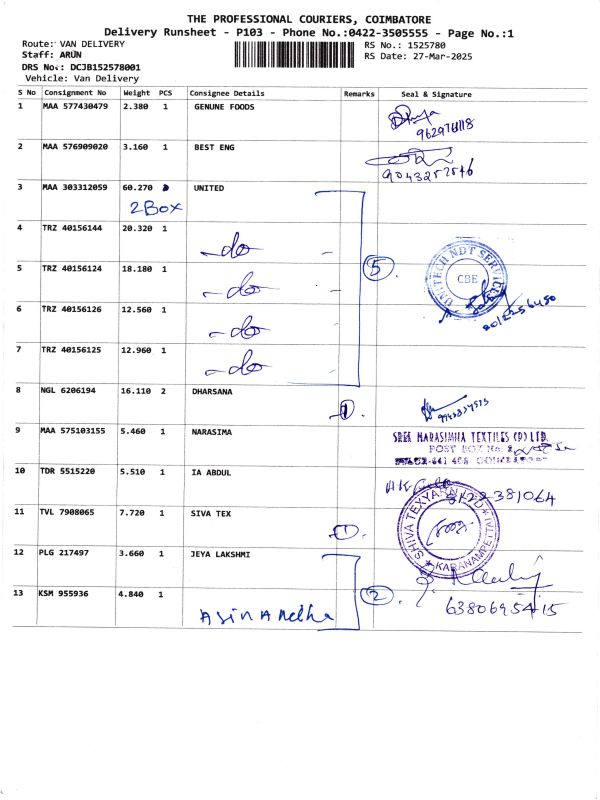 THE PROFESSIONAL COURIERS, COIMBATORE
Delivery Runsheet - P103 - Phone No.:0422-3505555 - Page No.:1
Route: VAN DELIVERY
RS No.: 1525780
Staff: ARUN
RS Date: 27-Mar-2025
DRS No.: DCJB152578001
Vehicle: Van Delivery
S No Consignment No Weight PCS Consignee Details Remarks Seal & Signature
1 MAA 577430479 2.380 1 GENUNE FOODS
2 MAA 576909020 3.160 1 BEST ENG
3 MAA 303312059 60.270 UNITED
2 Box
4 TRZ 40156144 20.320 1
-do -
5 TRZ 40156124 18.180 1
-do -
5
UNITECH NDT SERVICES
CBE
6 TRZ 40156126 12.560 1
-do -
7 TRZ 40156125 12.960 1
-do
8 NGL 6206194 16.110 2 DHARSANA
1
9 MAA 575103155 5.460 1 NARASIMA
SREE NARASIMHA TEXTILES (P) LTD.
POST BOX No.
10 TDR 5515220 5.510 1 IA ABDUL
11 TVL 7908065 7.720 1 SIVA TEX
1
SHIVA TEXYARN LTD
KARANAMPETTAI
12 PLG 217497 3.660 1 JEYA LAKSHMI
13 KSM 955936 4.840 1
2
6380695415